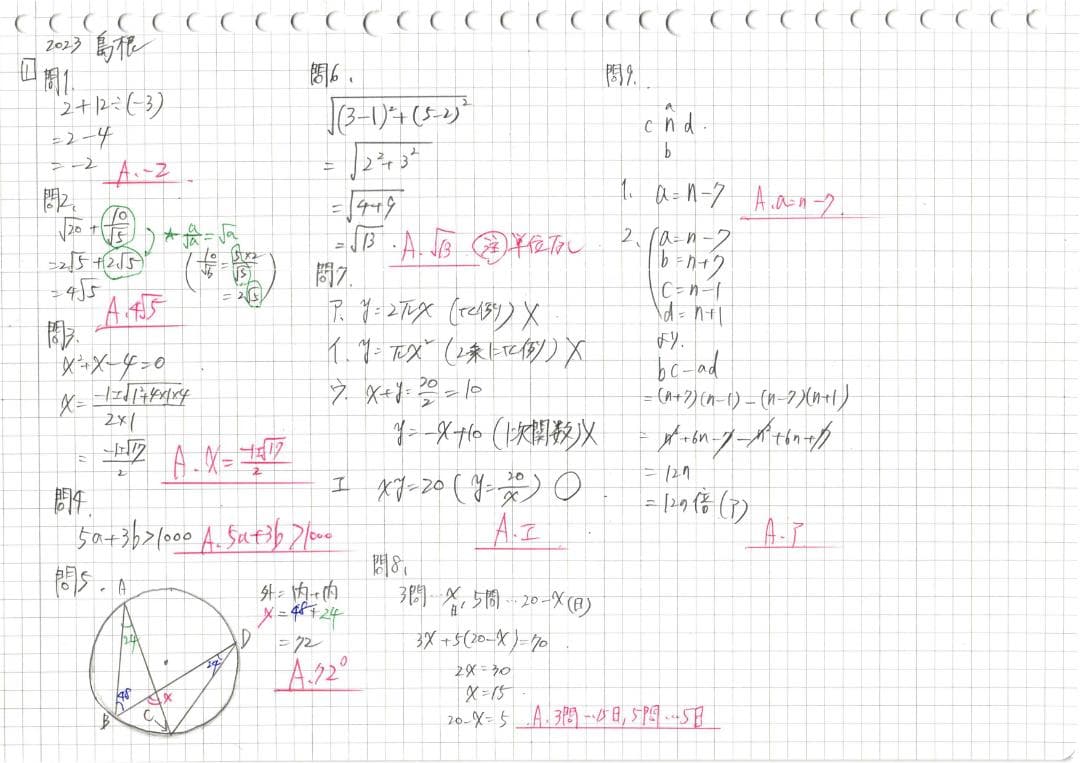 2023 島根
1
問1.
2+12÷(-3)
=2-4
=-2
A.-2
問2.
√20+10/√5
=2√5+2√5
=4√5
★ a/√a=√a
(10/√5=5×2/√5
=2√5)
A.4√5
問3.
x²+x-4=0
x=(-1±√(1²+4×1×4))/(2×1)
=(-1±√17)/2
A. x=(-1±√17)/2
問4.
5a+3b>1000 A.5a+3b>1000
問5.
A
24
D
24
48
x
B
C
外=内+内
x=48+24
=72
A.72°
問6.
√((3-1)²+(5-2)²)
=√(2²+3²)
=√(4+9)
=√13.
A.√13 注 単位なし
問7.
ア. y=2πx (比例) X
イ. y=πx² (2乗に比例) X
ウ. x+y=20/2=10
y=-x+10 (1次関数) X
エ xy=20 (y=20/x) ○
A.エ
問8.
3問…x日, 5問…20-x(日)
3x+5(20-x)=70
2x=30
x=15
20-x=5 A. 3問…15日, 5問…5日
問9.
a
c n d.
b
1. a=n-7
A.a=n-7
2. a=n-7
b=n+7
c=n-1
d=n+1
より.
bc-ad
=(n+7)(n-1)-(n-7)(n+1)
=n²+6n-7-n²+6n+7
=12n
=12の倍(ア)
A.ア